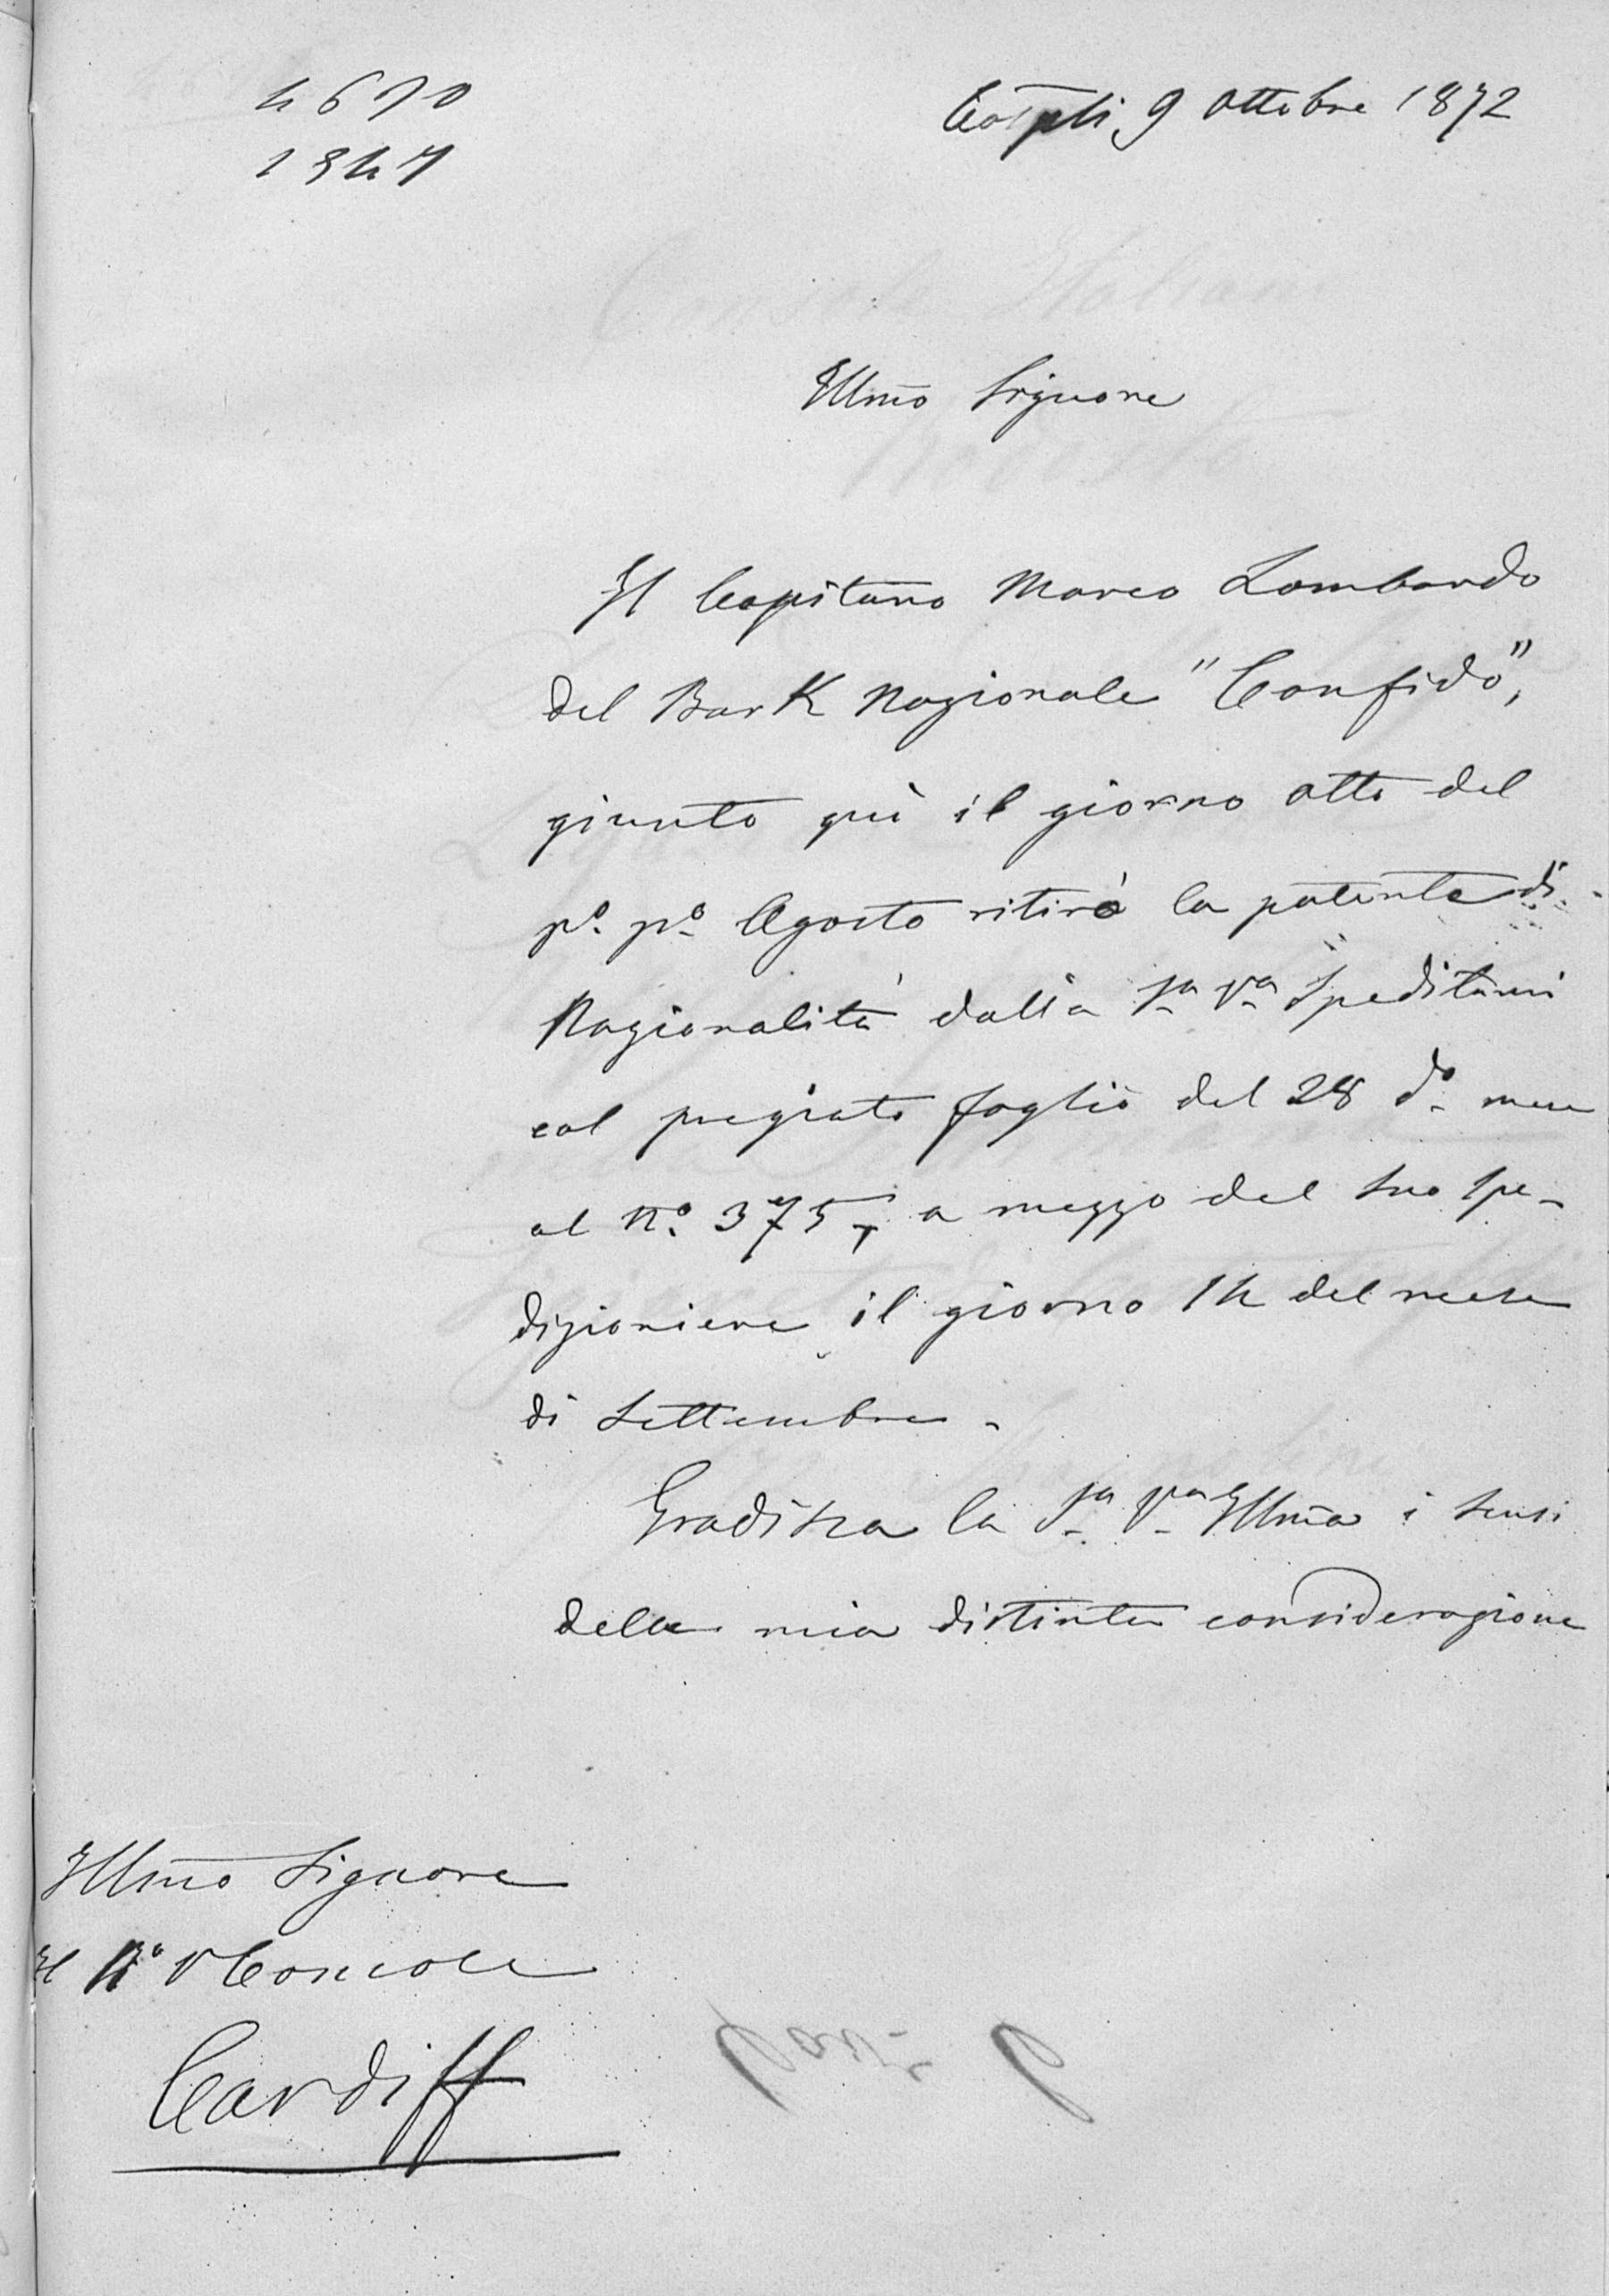 4670
1347
Cospli, 9 Ottobre 1872
Illmo Signore
Il Capitano Marco Lombardo
del Bark Nazionale "Confido",
giunto quì il giorno otto del
po. po. Agosto ritirò la patente di
Nazionalità dalla Sa Va Speditami
col pregiato foglio del 28 do. mese
al No. 375, a mezzo del suo spe-
dizioniere il giorno 14 del mese
di Settembre.
Gradisca la Sa Va Illma i sensi
della mia distinta considerazione
Illmo Signore
Il Ro V Console
Cardiff